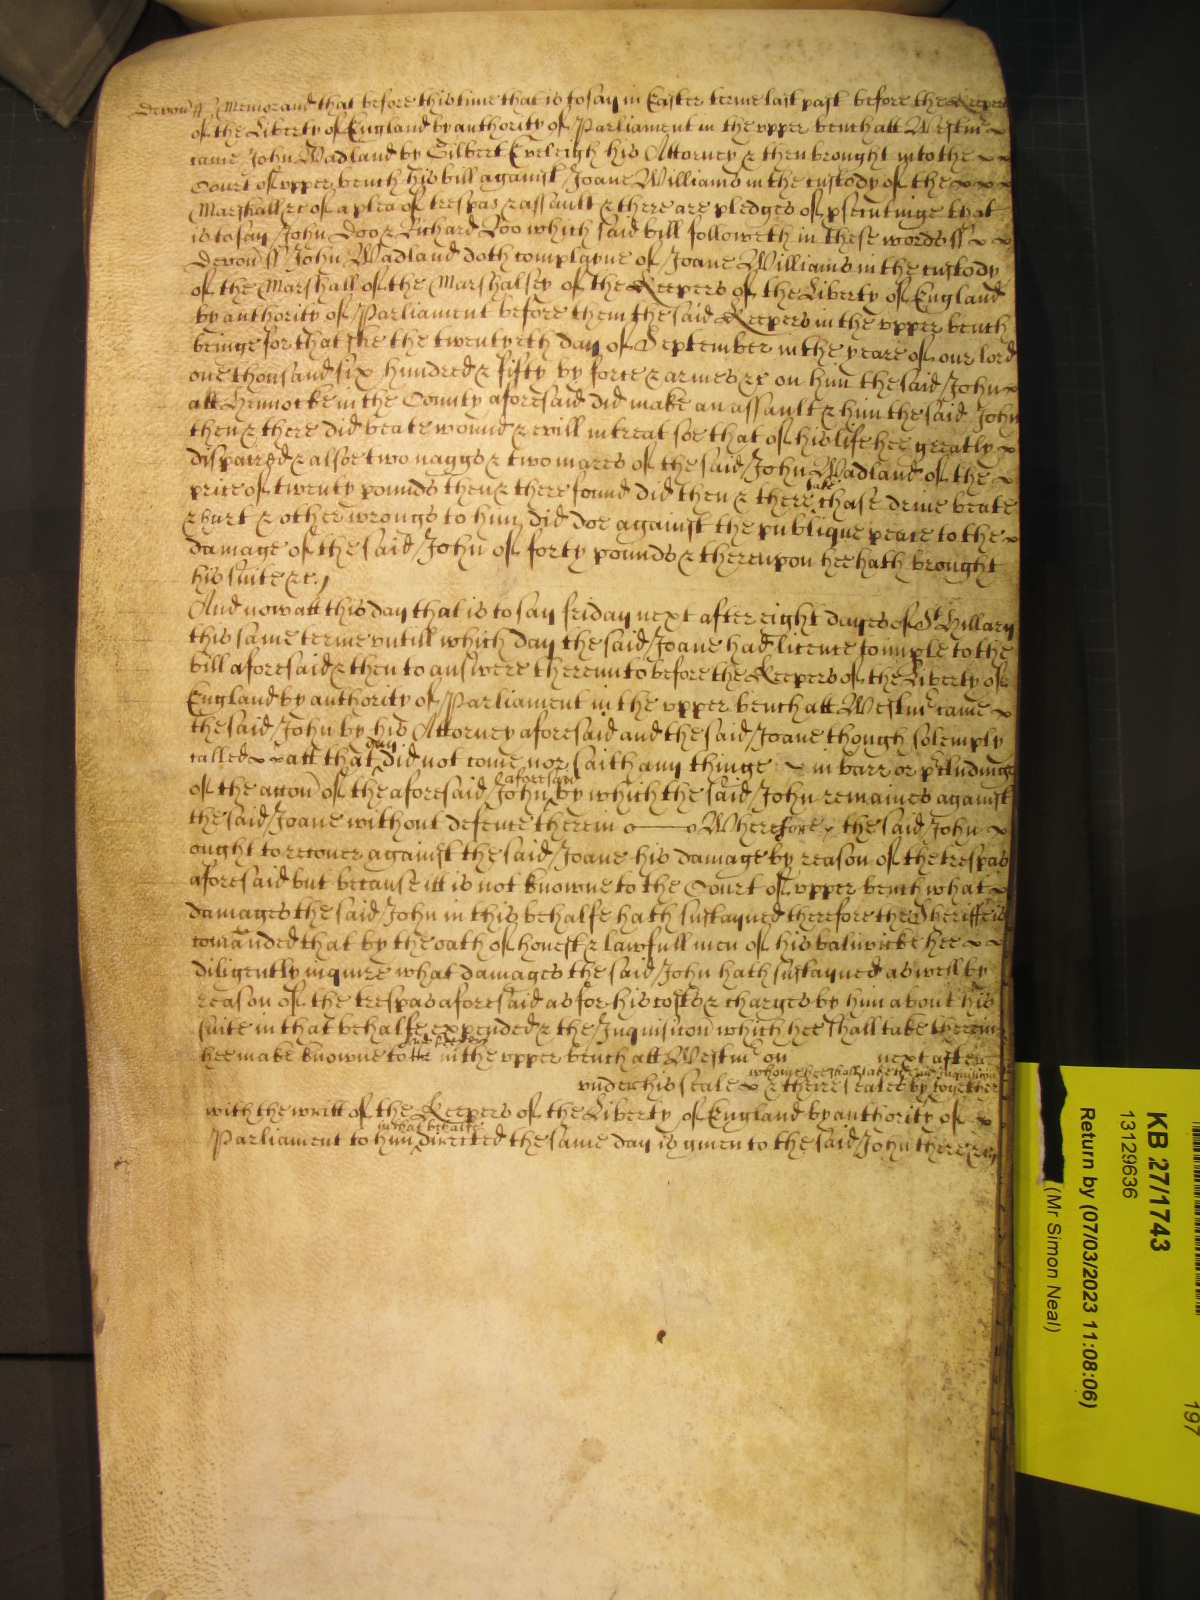 Devon ss Memorand that before this time that is to say in Easter terme last past before the Keepers
of the Liberty of England by authority of Parliament in the upper bench att Westmr
came John Wadland by Gilbert Eveleigh his Attorney & then brought into the
Court of upper bench his bill against Joane Williams in the custody of the
Marshall &c of a plea of trespas & assault & there are pledges of psecutinge that
is to say John Doo & Richard Roo which said bill followeth in these words ss
Devon ss John Wadland doth complayne of Joane Williams in the custody
of the Marshall of the Marshalsey of the Keepers of the Liberty of England
by authority of Parliament before them the said Keepers in the upper bench
beinge for that she the twentyeth day of September in the yeare of our lord
one thousand six hundred & fifty by force & armes &c on him the said John
att Hennocke in the County aforesaid did make an assault & him the said John
then & there did beate wound & evill intreat soe that of his life hee greatly
dispaired & alsoe two naggs & two mares of the said John Wadland of the
price of twenty pounds then & there found did then & there take chase drive beate
& hurt & other wrongs to him did doe against the publique peace to the
damage of the said John of forty pounds & thereupon hee hath brought
his suite &c.
And now att this day that is to say friday next after eight dayes of St Hillary
this same terme untill which day the said Joane had licence to imple to the
bill aforesaid & then to answere thereunto before the Keepers of the Liberty of
England by authority of Parliament in the upper bench att Westmr came
the said John by his Attorney aforesaid and the said Joane though solemply
called att that day did not come nor saith any thinge in barr or pcludinge
of the accon of the aforesaid John aforesaid by which the said John remaines against
the said Joane without defence therein Wherefore the said John
ought to recover against the said Joane his damage by reason of the trespas
aforesaid but because itt is not knowne to the Court of upper bench what
damages the said John in this behalfe hath sustayned therefore the Sheriffe is
comanded that by the oath of honest & lawfull men of his baliwicke hee
diligently inquire what damages the said John hath sustayned as well by
reason of the trespas aforesaid as for his costs & charges by him about his
suite in that behalfe expended & the Inquisicon which hee shall take therein
hee make knowne to the in the upper bench att Westmr on next after
under his seale & there seales by whome hee shall take the said Inquisicon together
with the writt of the Keepers of the Liberty of England by authority of
Parliament to him in that behalfe directed the same day is given to the said John there &c
KB 27/1743
13129636
Return by (07/03/2023 11:08:06)
(Mr Simon Neal)
197